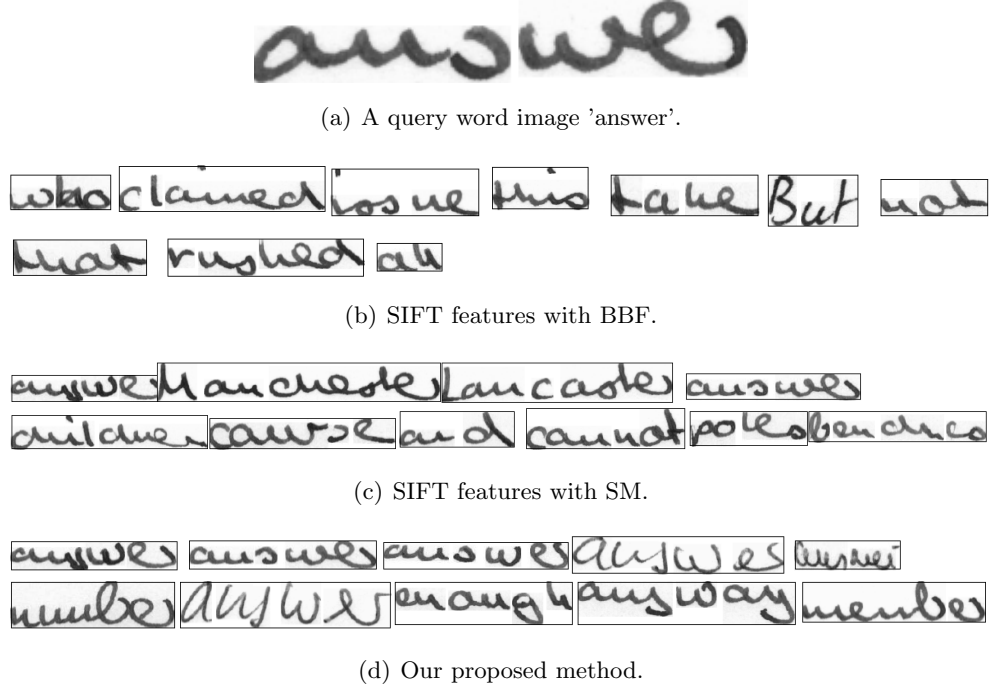 answer
(a) A query word image 'answer'.
who claimed issue this take But not
that rushed all
(b) SIFT features with BBF.
answer Manchester Lancaster answer
children cause and cannot poles benches
(c) SIFT features with SM.
answer answer answer answer answer
number answer enough anyway member
(d) Our proposed method.